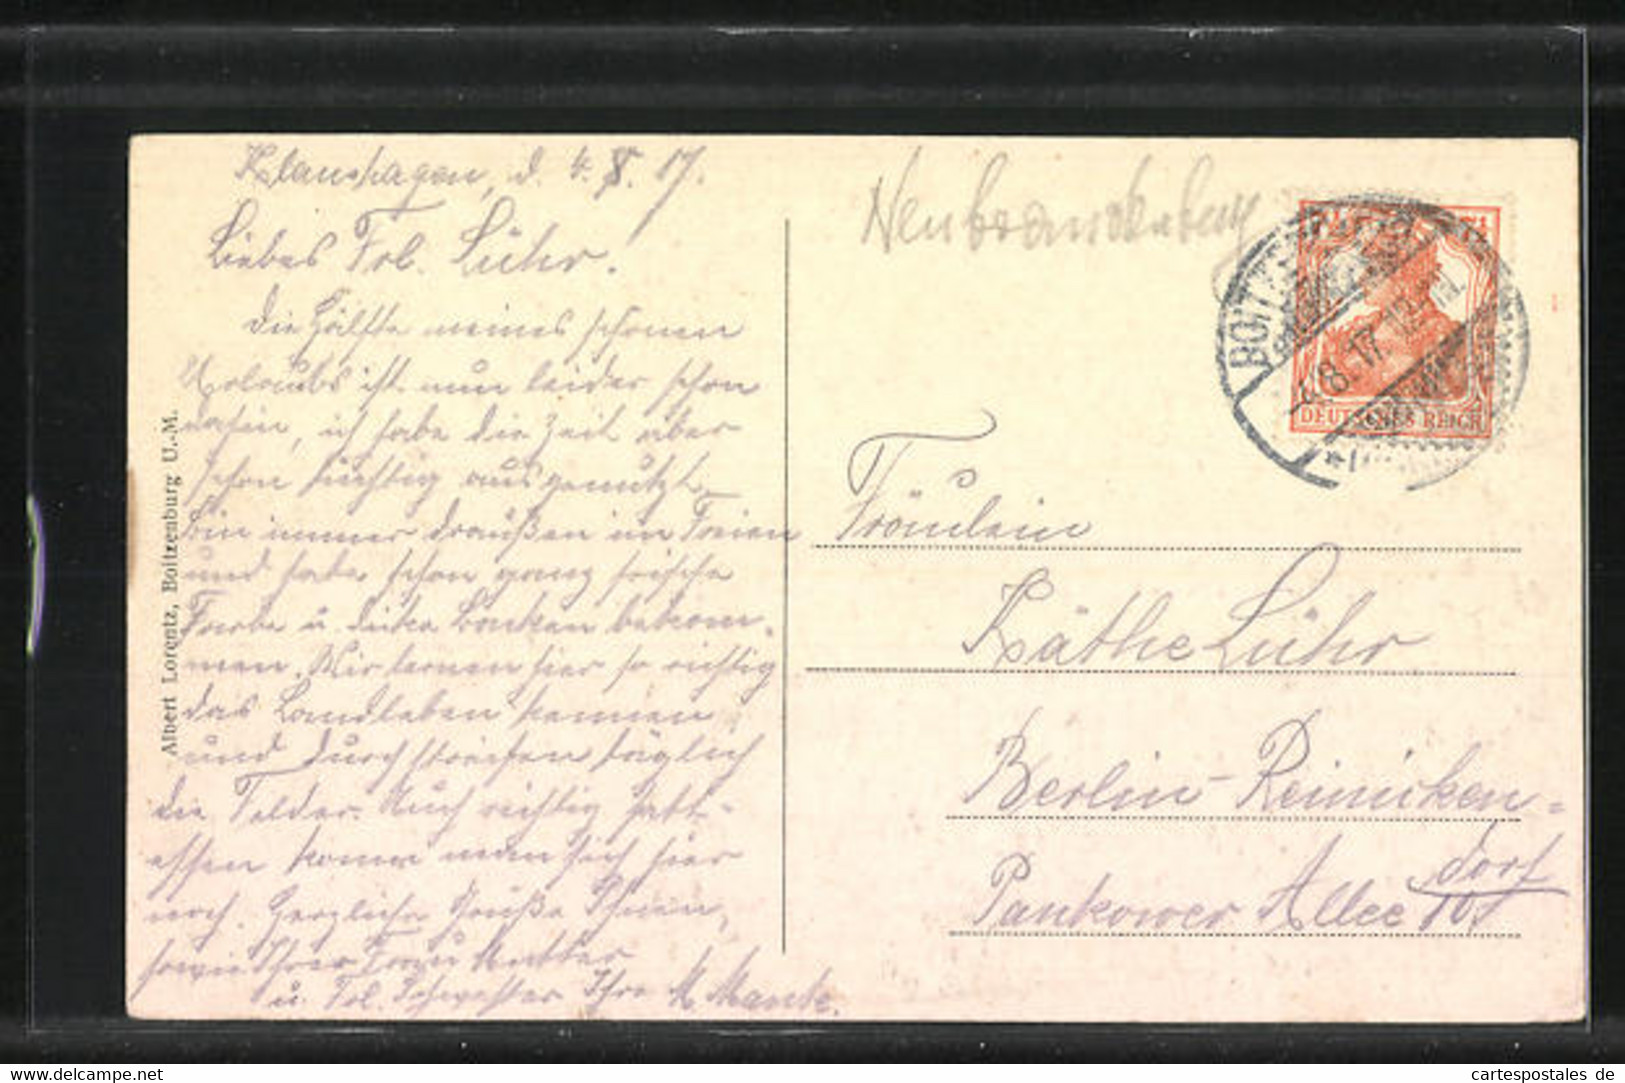 Klaushagen, d. 4. 8. 17.
Liebes Frl. Lühr.
Die Hälfte meines schönen
Urlaubs ist nun leider schon
dahin, ich habe die Zeit aber
schon tüchtig ausgenutzt,
bin immer draußen im Freien
und habe schon ganz frische
Farbe u. dicke Backen bekom-
men. Wir lernen hier so richtig
das Landleben kennen
und durchstreifen täglich
die Felder. Auch richtig satt-
essen kann man sich hier
noch. Herzliche Grüße Ihnen,
sowie Ihrer Frau Mutter
u. Frl. Schwester Ihre M. Manke.
Albert Lorentz, Boitzenburg U.-M.
Neubrandenburg
BOITZ
8.17.12
DEUTSCHES REICH
Fräulein
Käthe Lühr
Berlin-Reinicken=
dorf
Pankower Allee
cartespostales de
www.delcampe.net/en_US/